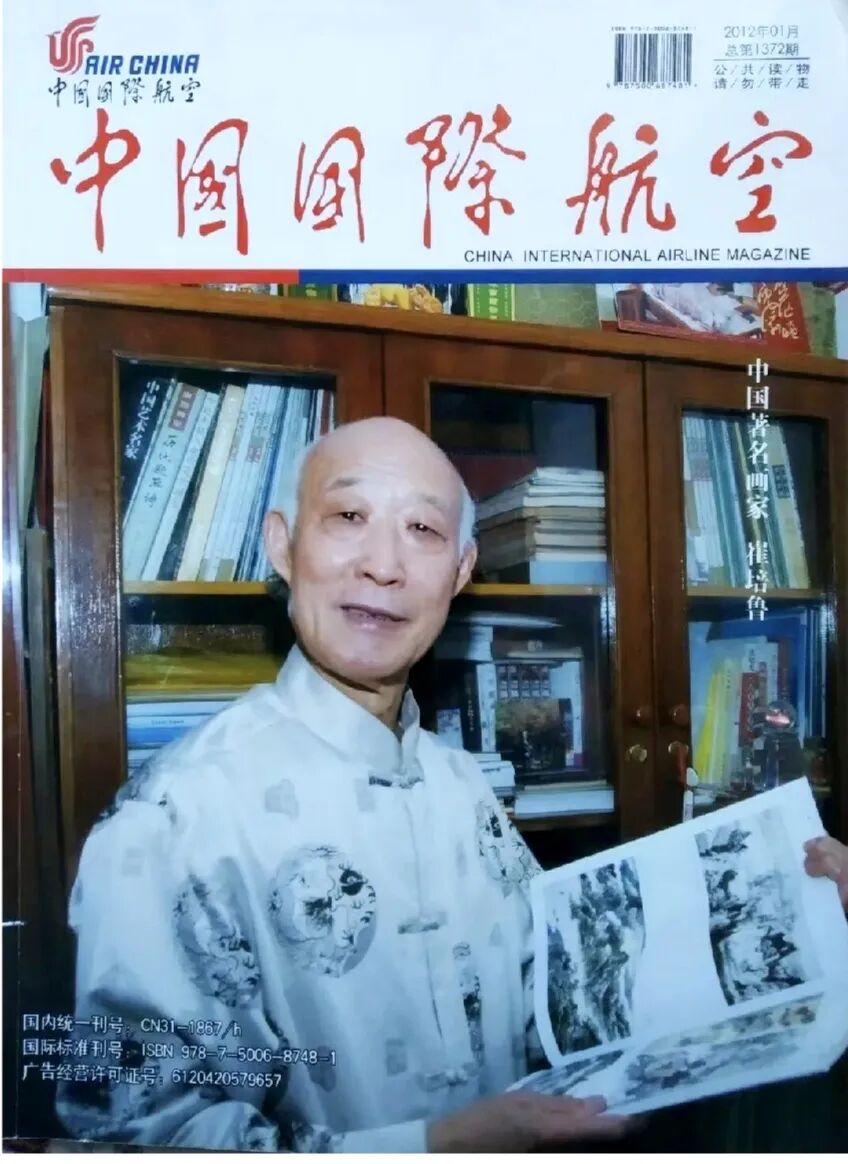 AIR CHINA
中国国際航空
ISBN 978-7-5006-8748-1
2012年01月
总第1372期
公/共/读/物
请/勿/带/走
中国国際航空
CHINA INTERNATIONAL AIRLINE MAGAZINE
中国著名画家 崔培鲁
中国艺术名家
国内统一刊号：CN31-1867/h
国际标准刊号：ISBN 978-7-5006-8748-1
广告经营许可证号：6120420579657